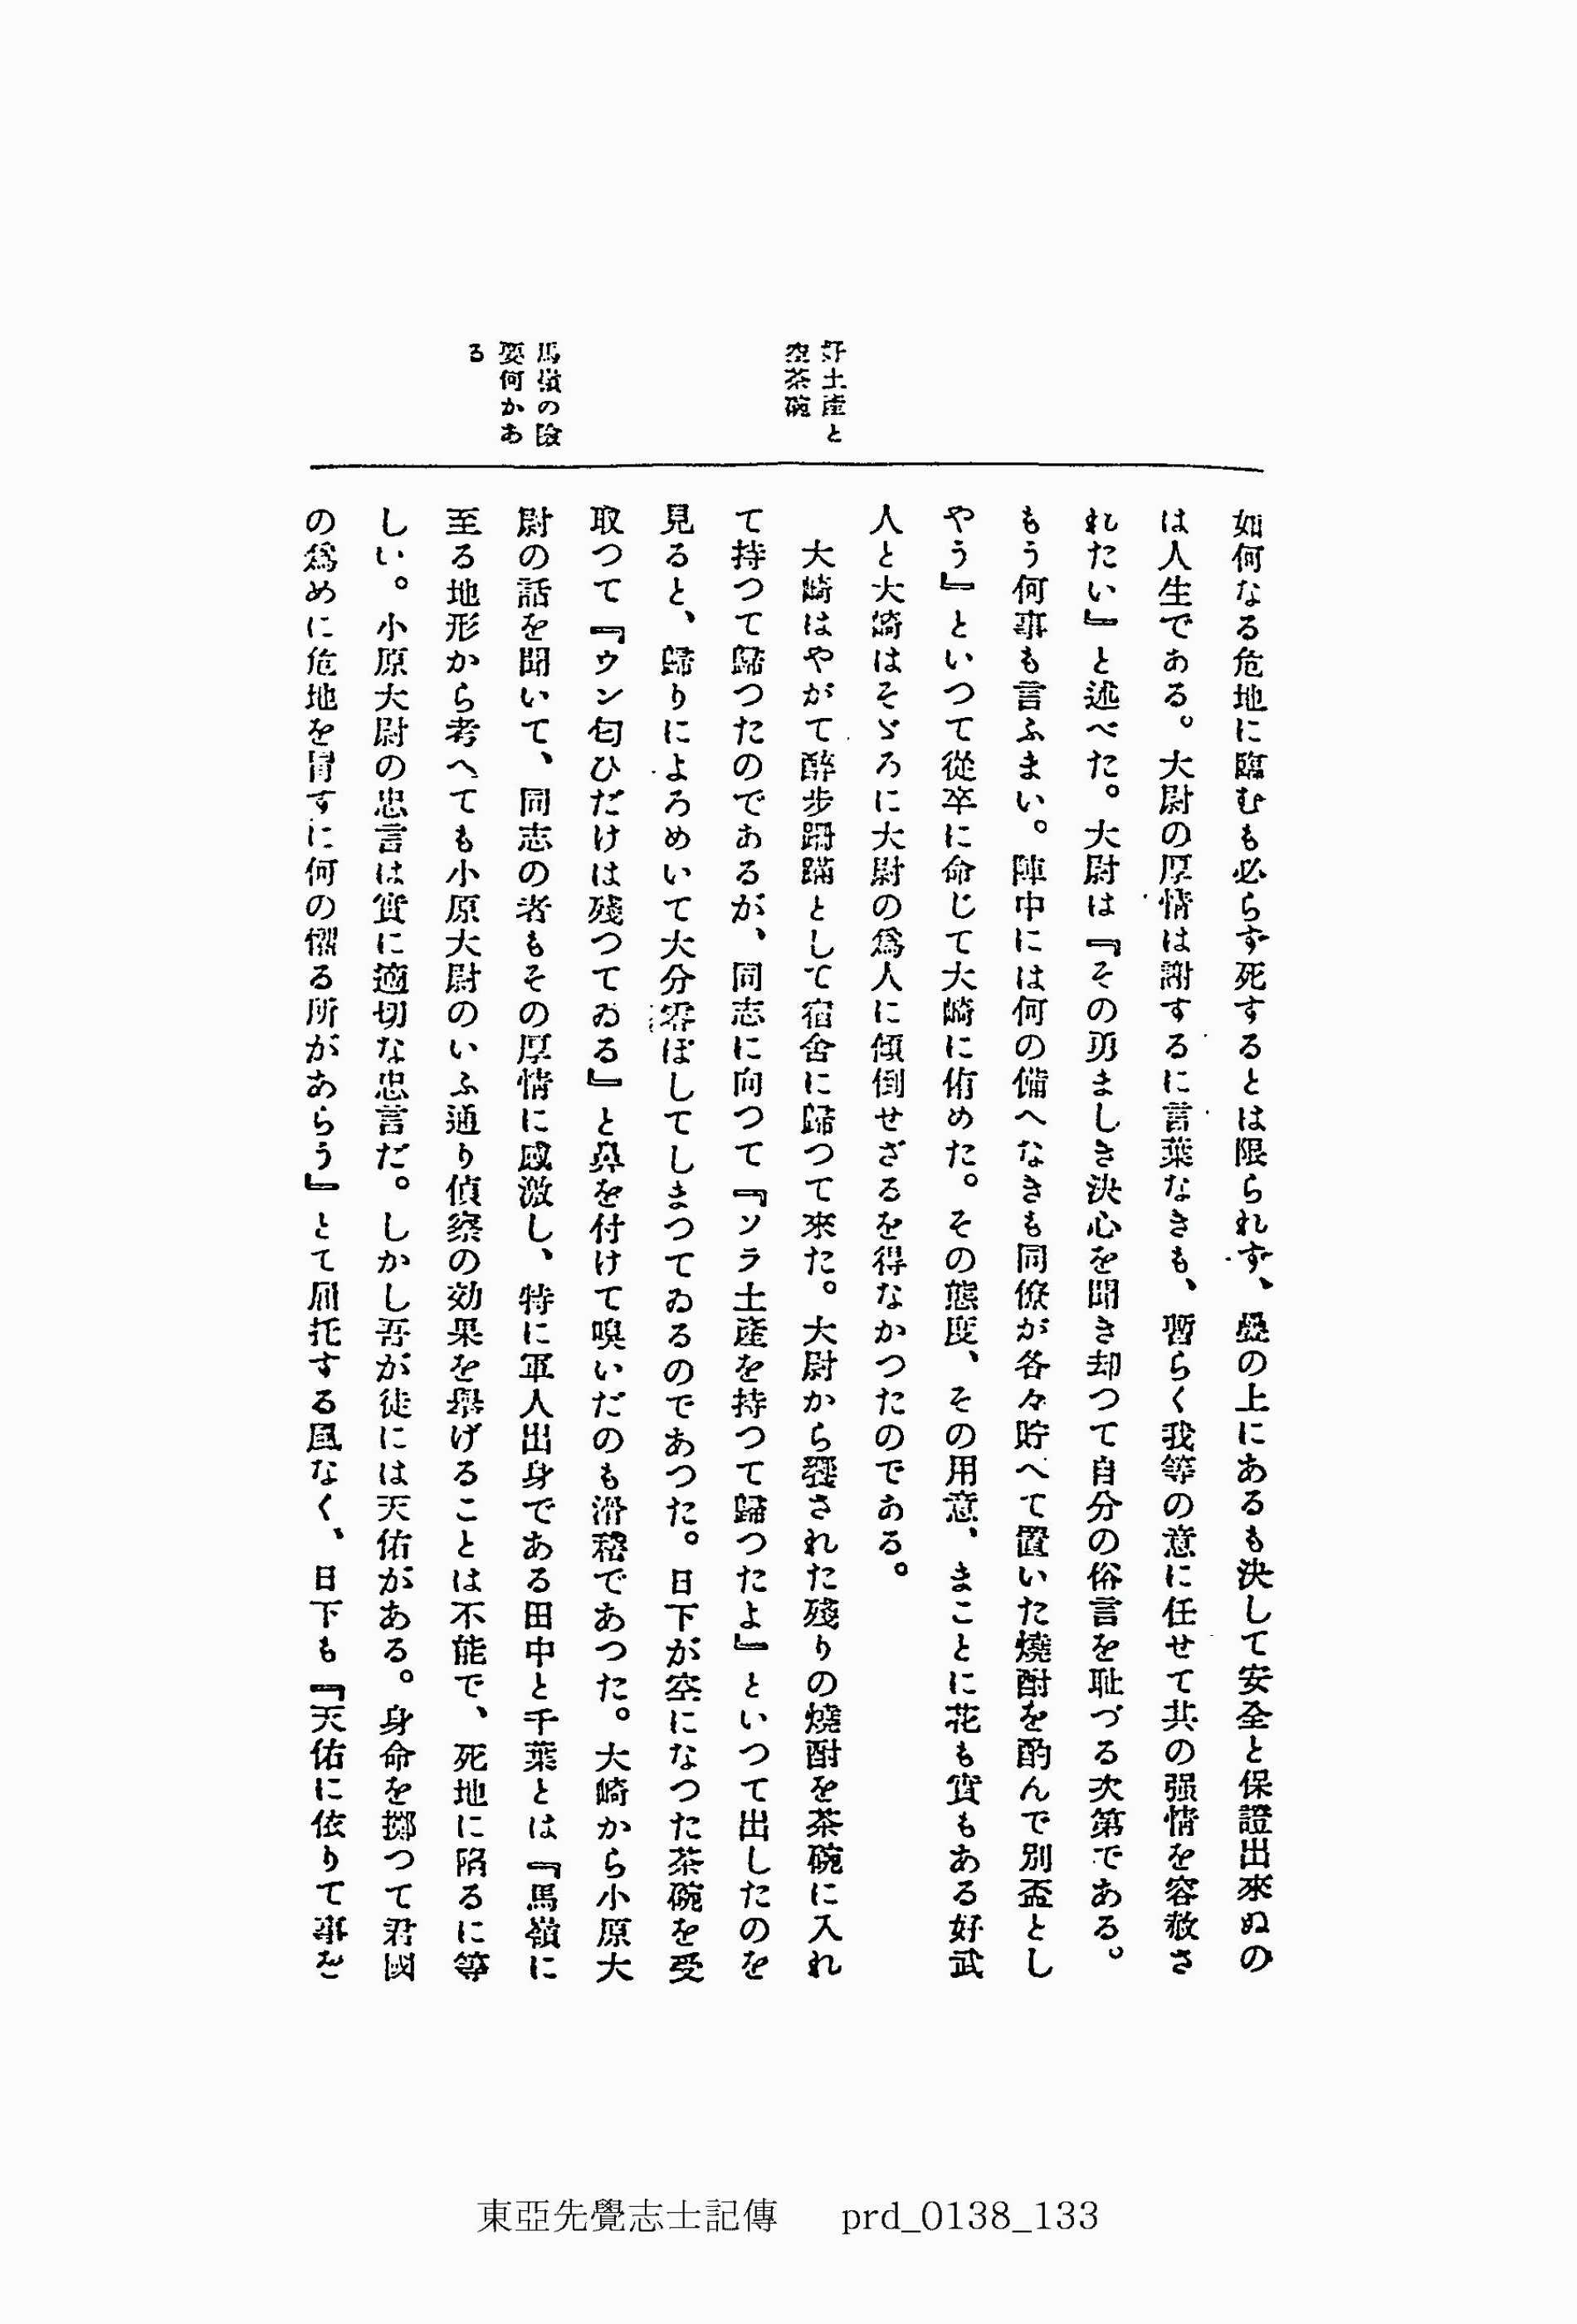 好土産と
空茶碗
馬嶺の險
要何かあ
る
如何なる危地に臨むも必らず死するとは限られず、疊の上にあるも決して安全と保證出來ぬの
は人生である。大尉の厚情は謝するに言葉なきも、暫らく我等の意に任せて共の强情を容赦さ
れたい』と述べた。大尉は『その勇ましき決心を聞き却つて自分の俗言を耻づる次第である。
もう何事も言ふまい。陣中には何の備へなきも同僚が各々貯へて置いた燒酎を酌んで別盃とし
やう』といつて從卒に命じて大崎に侑めた。その態度、その用意、まことに花も實もある好武
人と大崎はそゞろに大尉の爲人に傾倒せざるを得なかつたのである。
大崎はやがて醉步蹣跚として宿舍に歸つて來た。大尉から饗された殘りの燒酎を茶碗に入れ
て持つて歸つたのであるが、同志に向つて『ソラ土產を持つて歸つたよ』といつて出したのを
見ると、歸りによろめいて大分零ぼしてしまつてゐるのであつた。日下が空になつた茶碗を受
取つて『ウン匂ひだけは殘つてゐる』と鼻を付けて嗅いだのも滑稽であつた。大崎から小原大
尉の話を聞いて、同志の者もその厚情に感激し、特に軍人出身である田中と千葉とは『馬嶺に
至る地形から考へても小原大尉のいふ通り偵察の効果を擧げることは不能で、死地に陷るに等
しい。小原大尉の忠言は實に適切な忠言だ。しかし吾が徒には天佑がある。身命を擲つて君國
の爲めに危地を冒すに何の懼る所があらう』とて屈托する風なく、日下も『天佑に依りて事を
東亞先覺志士記傳 prd_0138_133